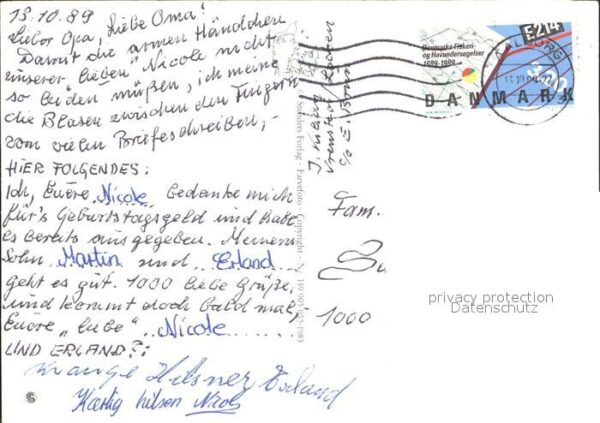 13.10.89
Lieber Opa, Liebe Oma!
Damit die armen Händchen
unserer "lieben" Nicole nicht
so leiden müßen, ich meine
die Blasen zwischen den Fingern
vom vielen Briefeschreiben,-
HIER FOLGENDES:
Ich, Euere Nicole bedanke mich
für's Geburtstagsgeld und habe
es bereits ausgegeben. Meinem
Sohn Martin und Erland
geht es gut. 1000 liebe Grüße,
und kommt doch bald mal,
Euere "liebe" Nicole
UND ERLAND?:
Mange Hilsner Erland
Kærlig hilsen
Danmarks Fiskeri-
og Havundersøgelser
1889-1989
DANMARK
AALBORG
Farvefoto - Copyright
Fam.
1000
privacy protection
Datenschutz